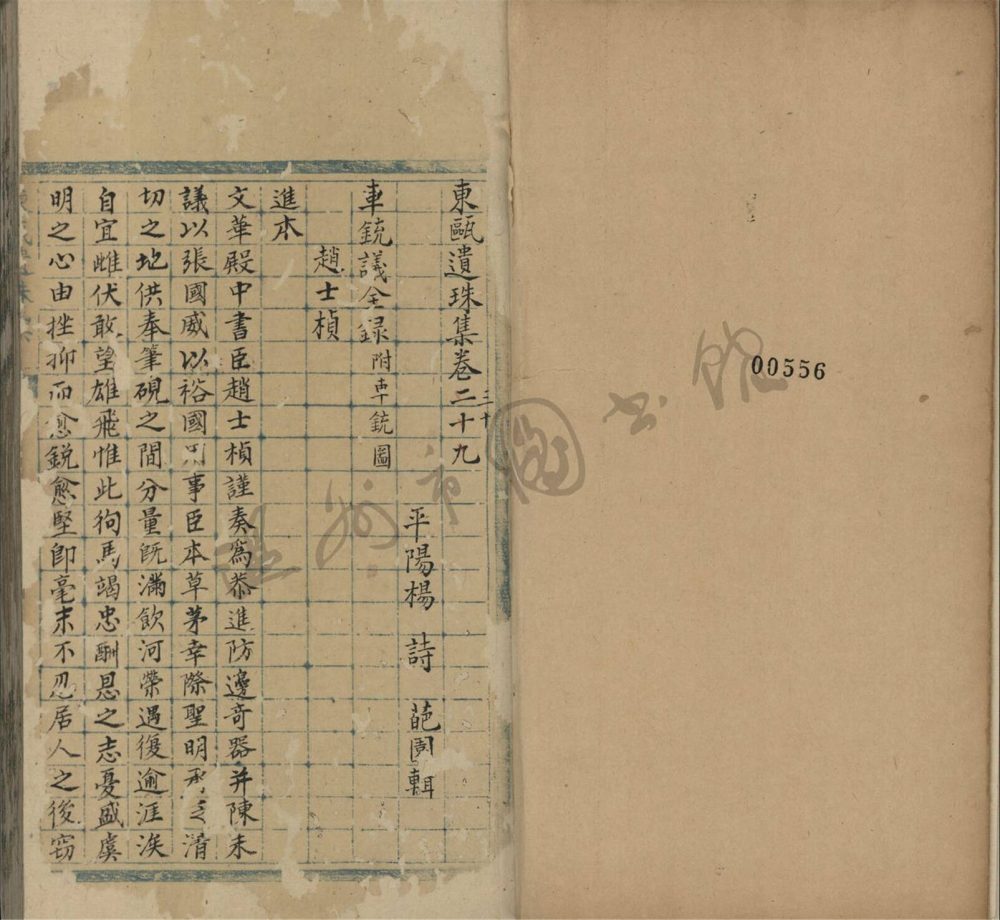 東甌遺珠集卷二十九
三十
平陽楊 詩 葩園輯
車銃議全録附車銃圖
趙士楨
進本
文華殿中書臣趙士楨謹奏為恭進防邊奇器并陳末
議以張國威以裕國用事臣本草茅幸際聖明承乏清
切之地供奉筆硯之間分量既滿飲河榮遇復逾涯涘
自宜雌伏敢望雄飛惟此狥馬竭忠酬恩之志憂盛虞
明之心由挫抑而愈銳愈堅即毫末不忍居人之後窃
溫州市圖書館
00556